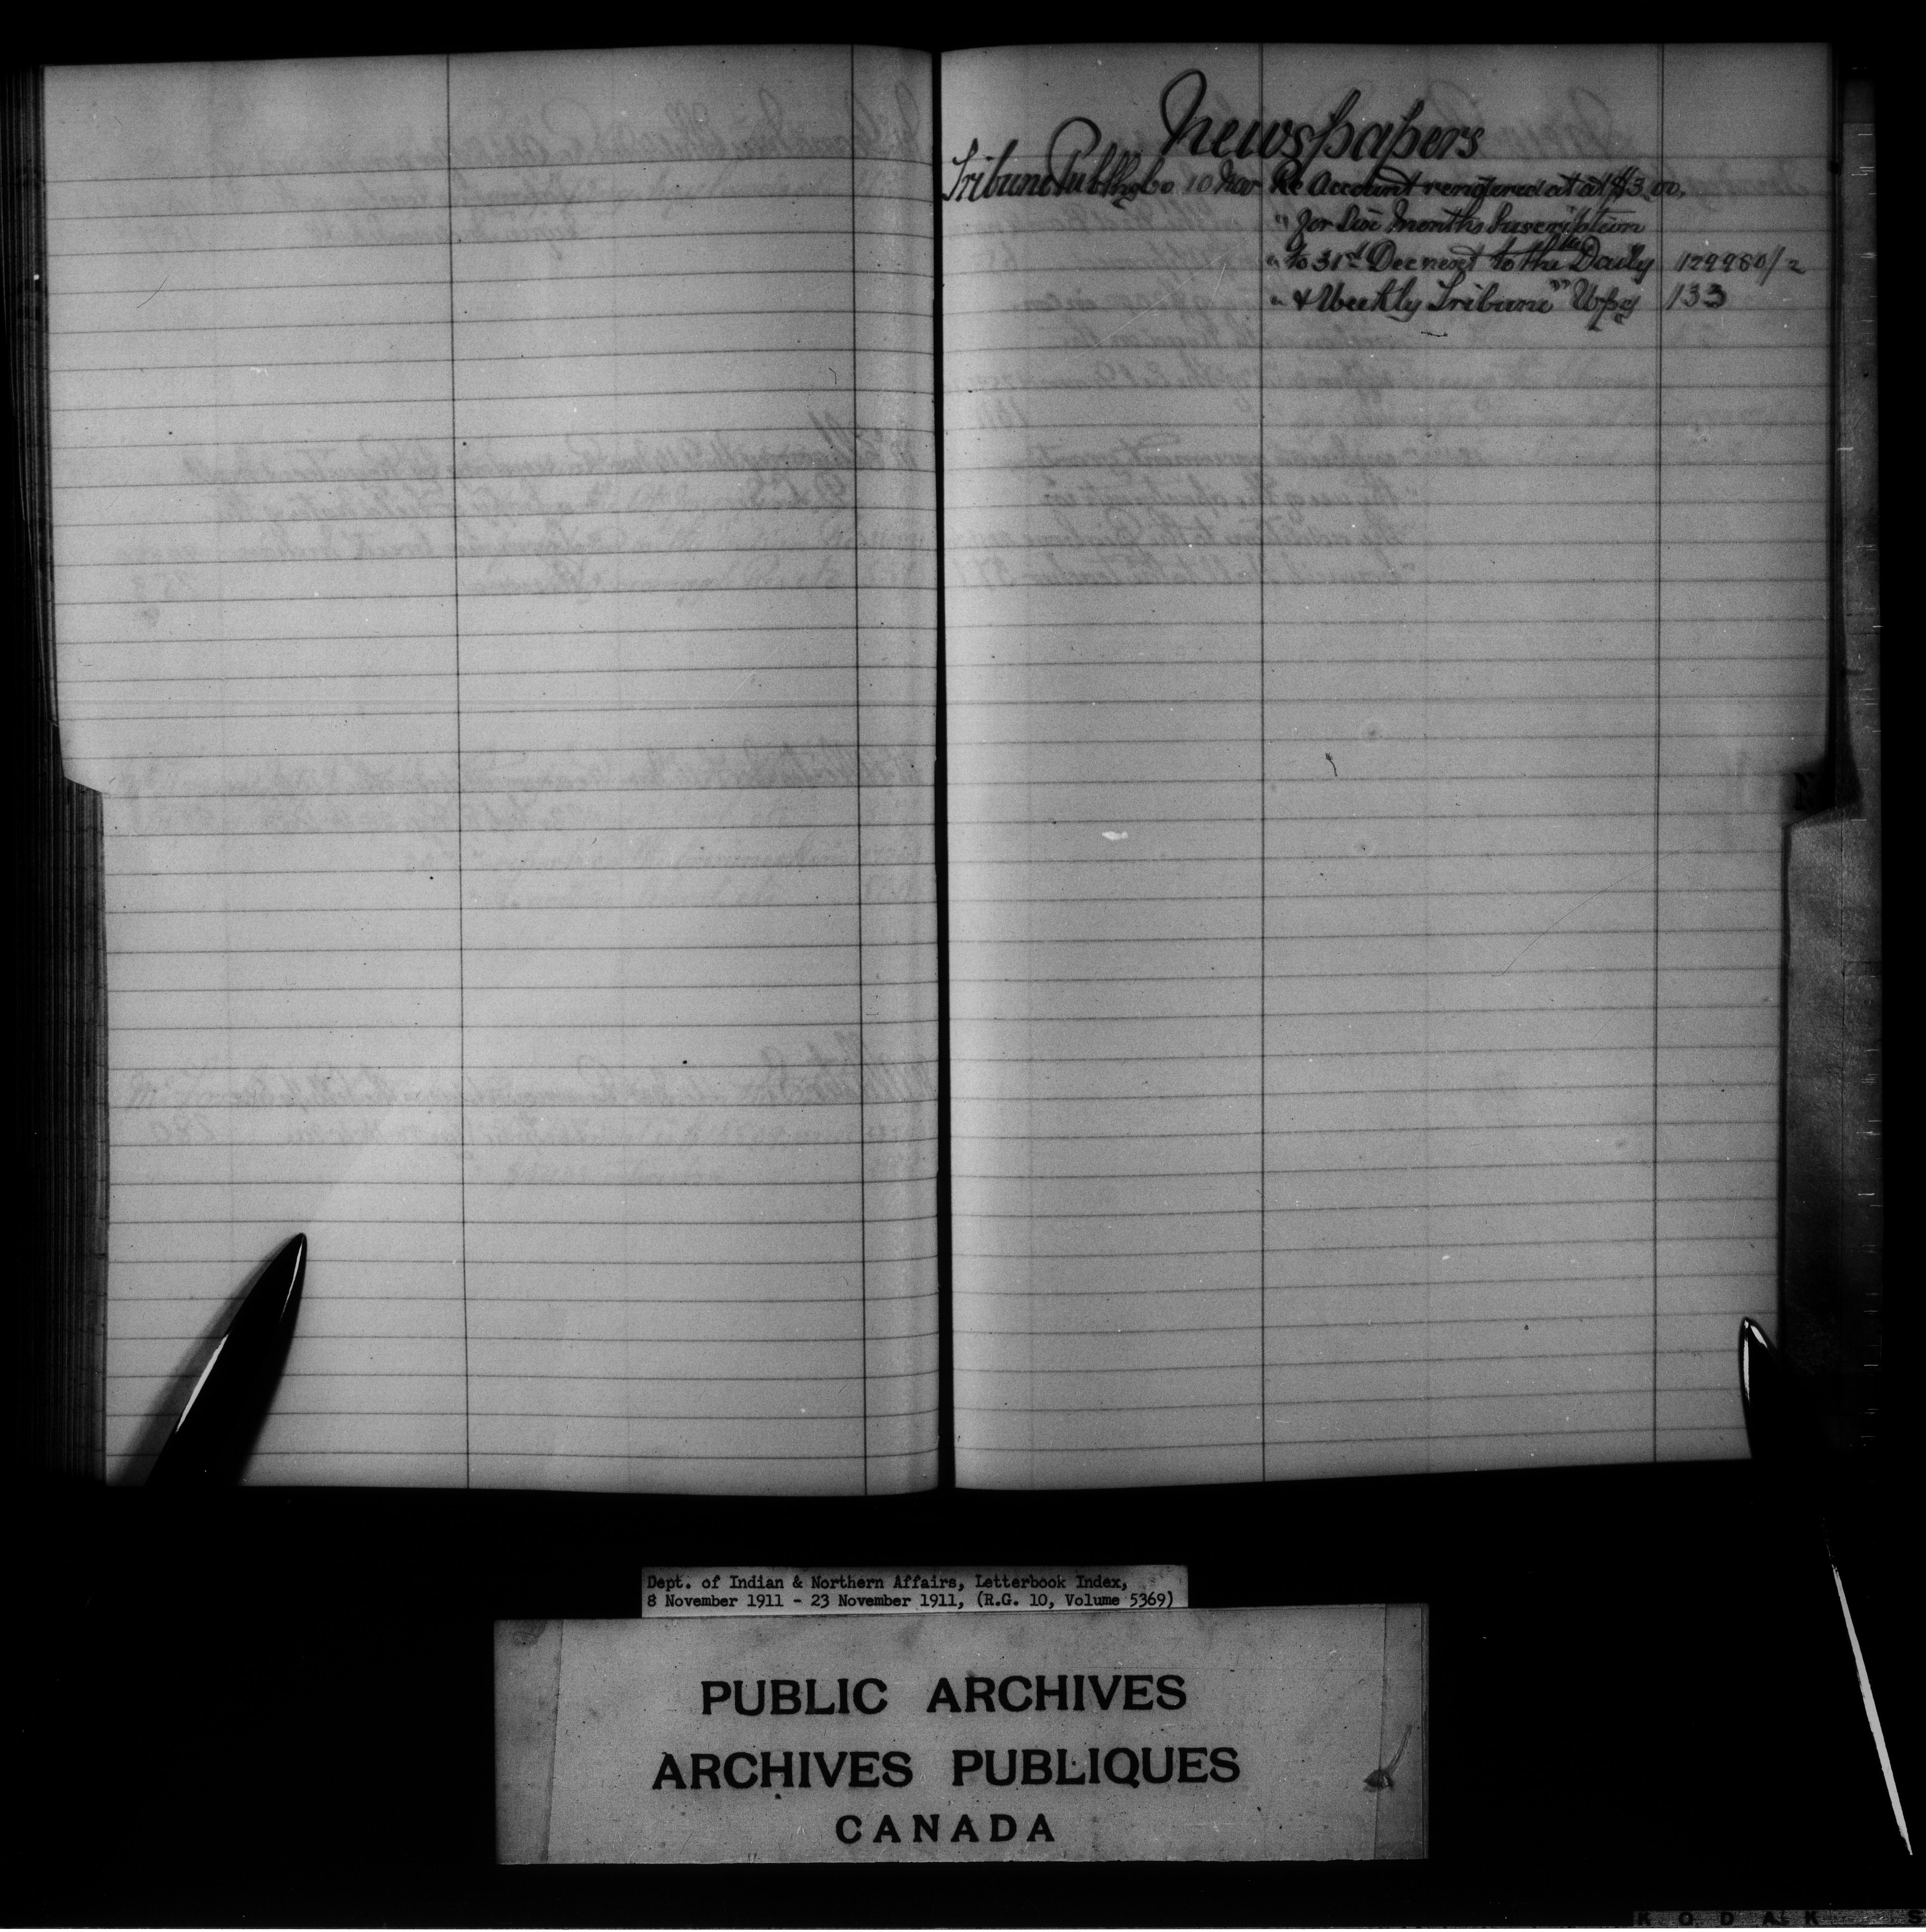 Newspapers
Tribune Publhg Co 10 Nov Re Account rendered at at $3.00,
" for Six Months Suscription
" to 31st Dec next to the "Daily 129980/2
" & Weekly Tribune" Wpg 133
Dept. of Indian & Northern Affairs, Letterbook Index,
8 November 1911 - 23 November 1911, (R.G. 10, Volume 5369)
PUBLIC ARCHIVES
ARCHIVES PUBLIQUES
CANADA
KODAK S